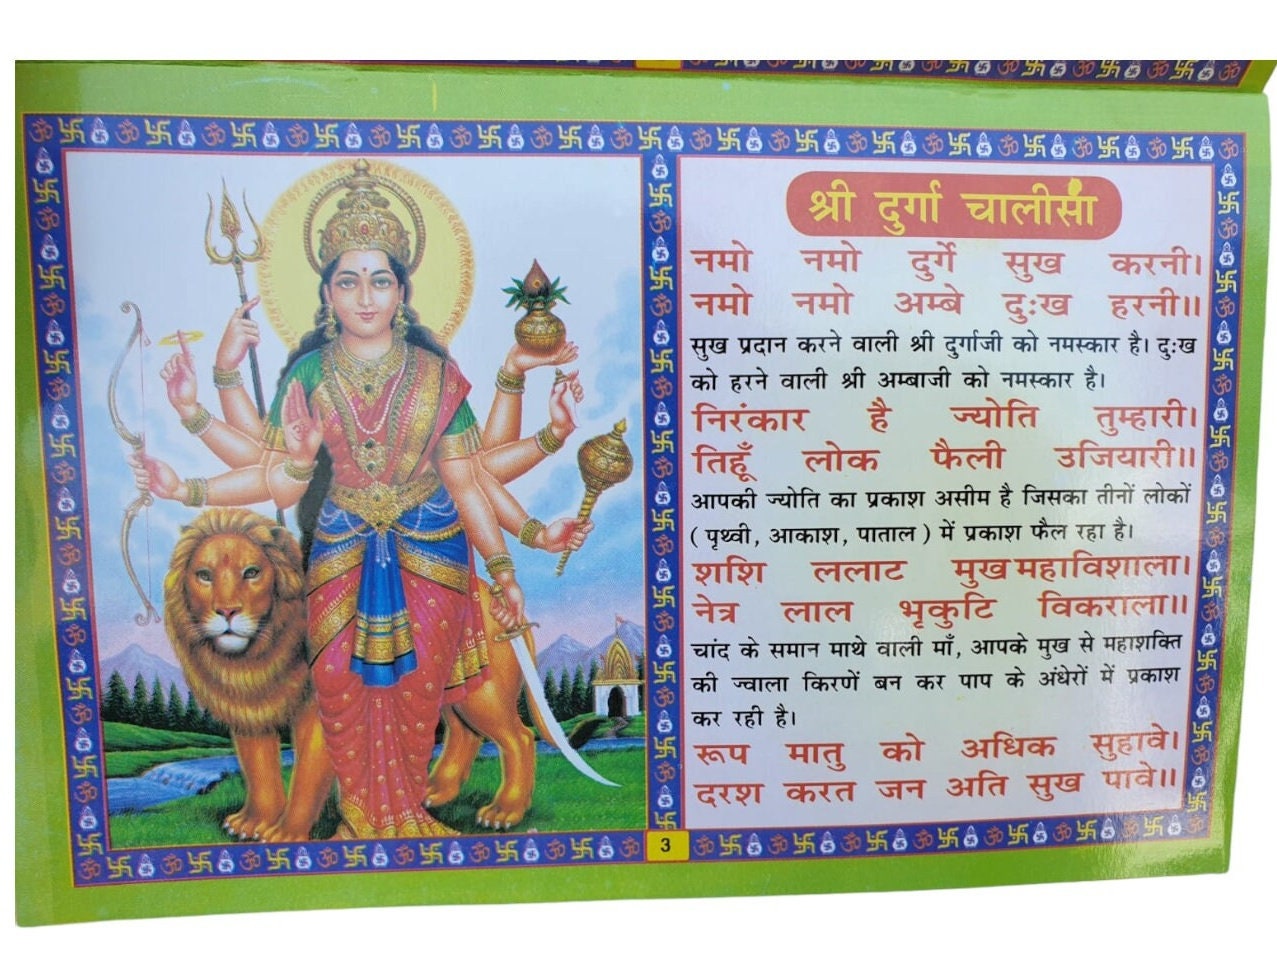 श्री दुर्गा चालीसा
नमो नमो दुर्गे सुख करनी।
नमो नमो अम्बे दुःख हरनी॥
सुख प्रदान करने वाली श्री दुर्गाजी को नमस्कार है। दुःख
को हरने वाली श्री अम्बाजी को नमस्कार है।
निरंकार है ज्योति तुम्हारी।
तिहूँ लोक फैली उजियारी॥
आपकी ज्योति का प्रकाश असीम है जिसका तीनों लोकों
( पृथ्वी, आकाश, पाताल ) में प्रकाश फैल रहा है।
शशि ललाट मुख महाविशाला।
नेत्र लाल भृकुटि विकराला॥
चांद के समान माथे वाली माँ, आपके मुख से महाशक्ति
की ज्वाला किरणें बन कर पाप के अंधेरों में प्रकाश
कर रही है।
रूप मातु को अधिक सुहावे।
दरश करत जन अति सुख पावे॥
3